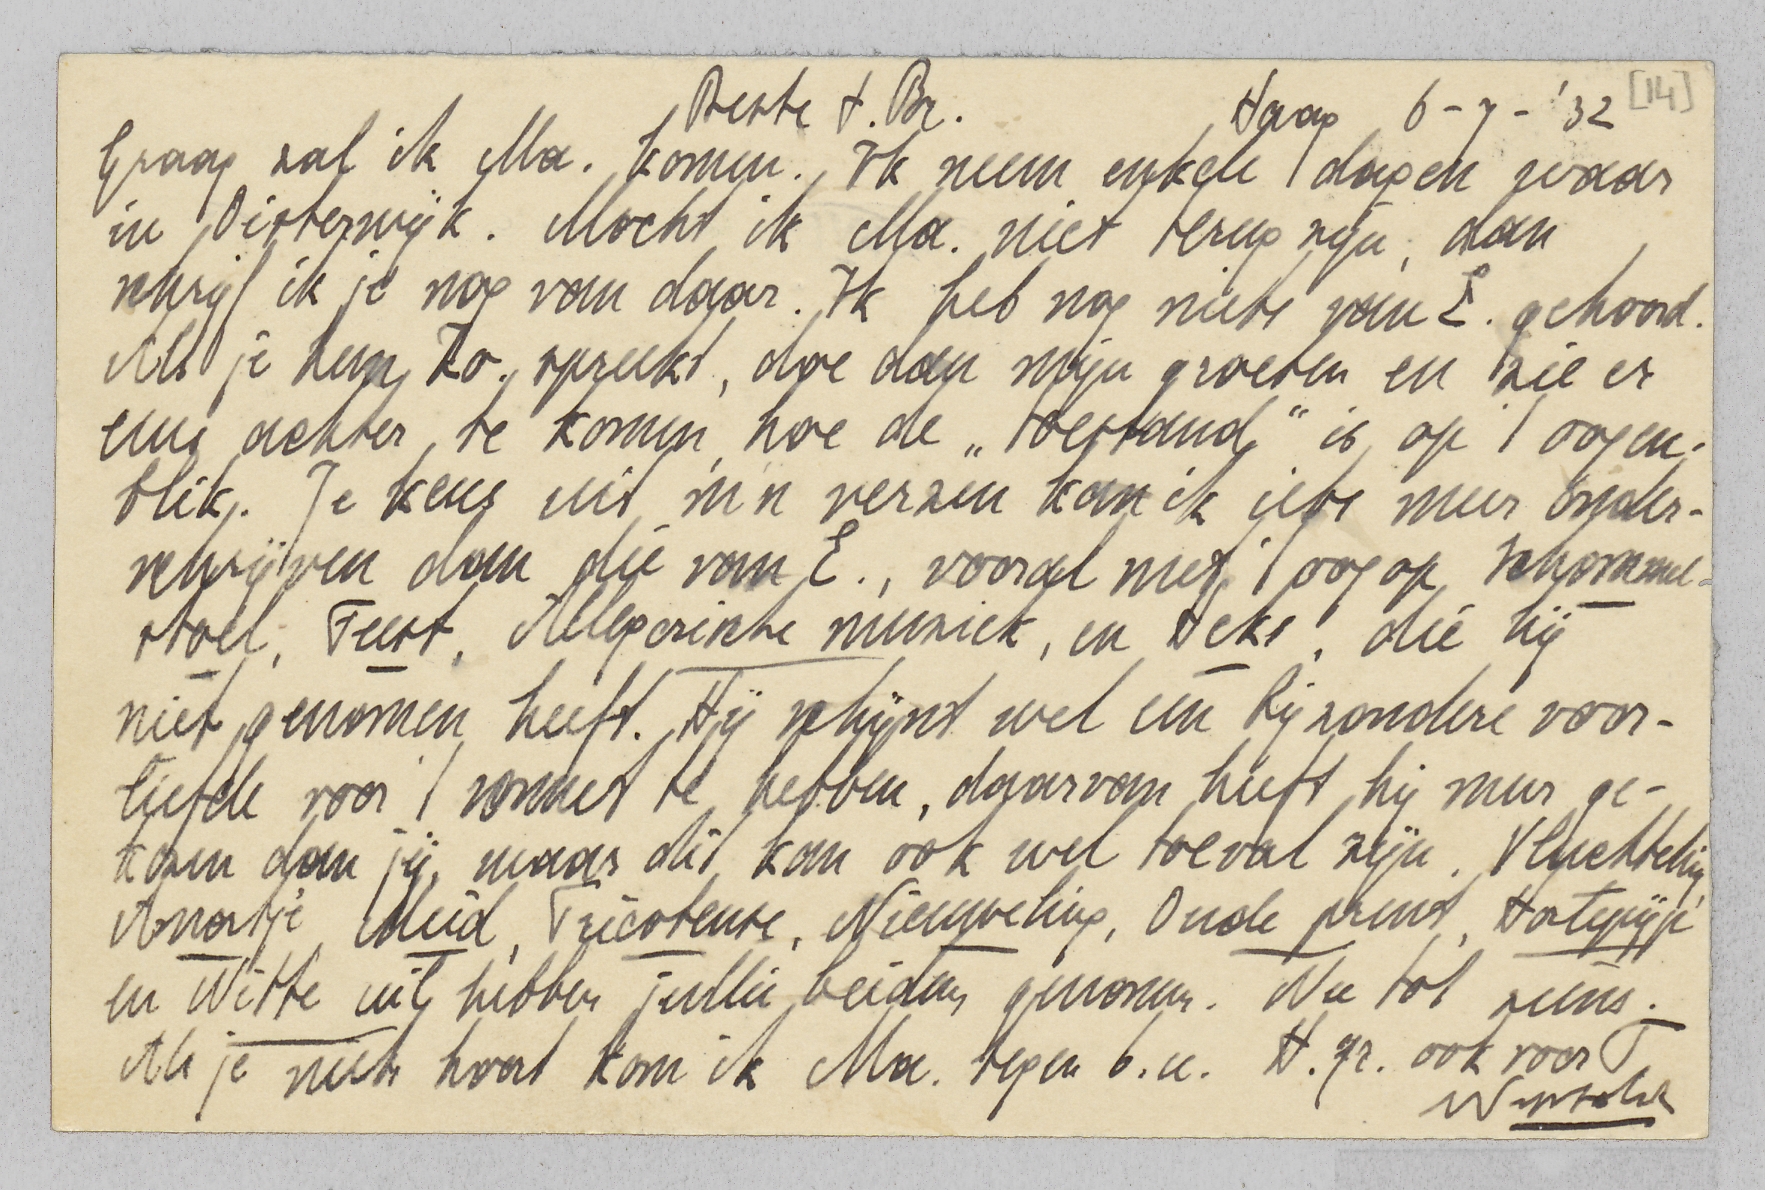 Beste v. Br. Haag 6-7-'32 [14]
Graag zal ik Ma. komen. Ik neem enkele dagen waar
in Oisterwijk. Mocht ik Ma. niet terug zijn, dan
schrijf ik je nog van daar. Ik heb nog niets van E. gehoord.
Als je hem Zo. spreekt, doe dan mijn groeten en zie er
eens achter te komen, hoe de „toestand" is op 't oogen-
blik. Je keus uit m'n verzen kan ik iets meer onder-
schrijven dan die van E., vooral met 't oog op Schommel-
stoel, Feest, Allegorische muziek, en Heks, die hij
niet genomen heeft. Hij schijnt wel een bijzondere voor-
liefde voor 't sonnet te hebben, daarvan heeft hij meer ge-
kozen dan jij, maar dit kan ook wel toeval zijn. Vluchteling,
Meid, Tricoteuse, Nieuweling, Oude prent,
en Witte uil hebben jullie beiden genomen. Nu tot ziens.
Als je niets hoort kom ik Ma. tegen 6.u. H.gr. ook voor T